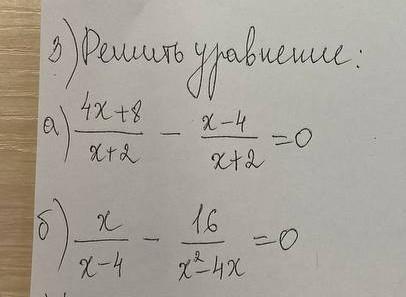 3) Решить уравнение:
а) (4x+8)/(x+2) − (x−4)/(x+2) = 0
б) x/(x−4) − 16/(x²−4x) = 0